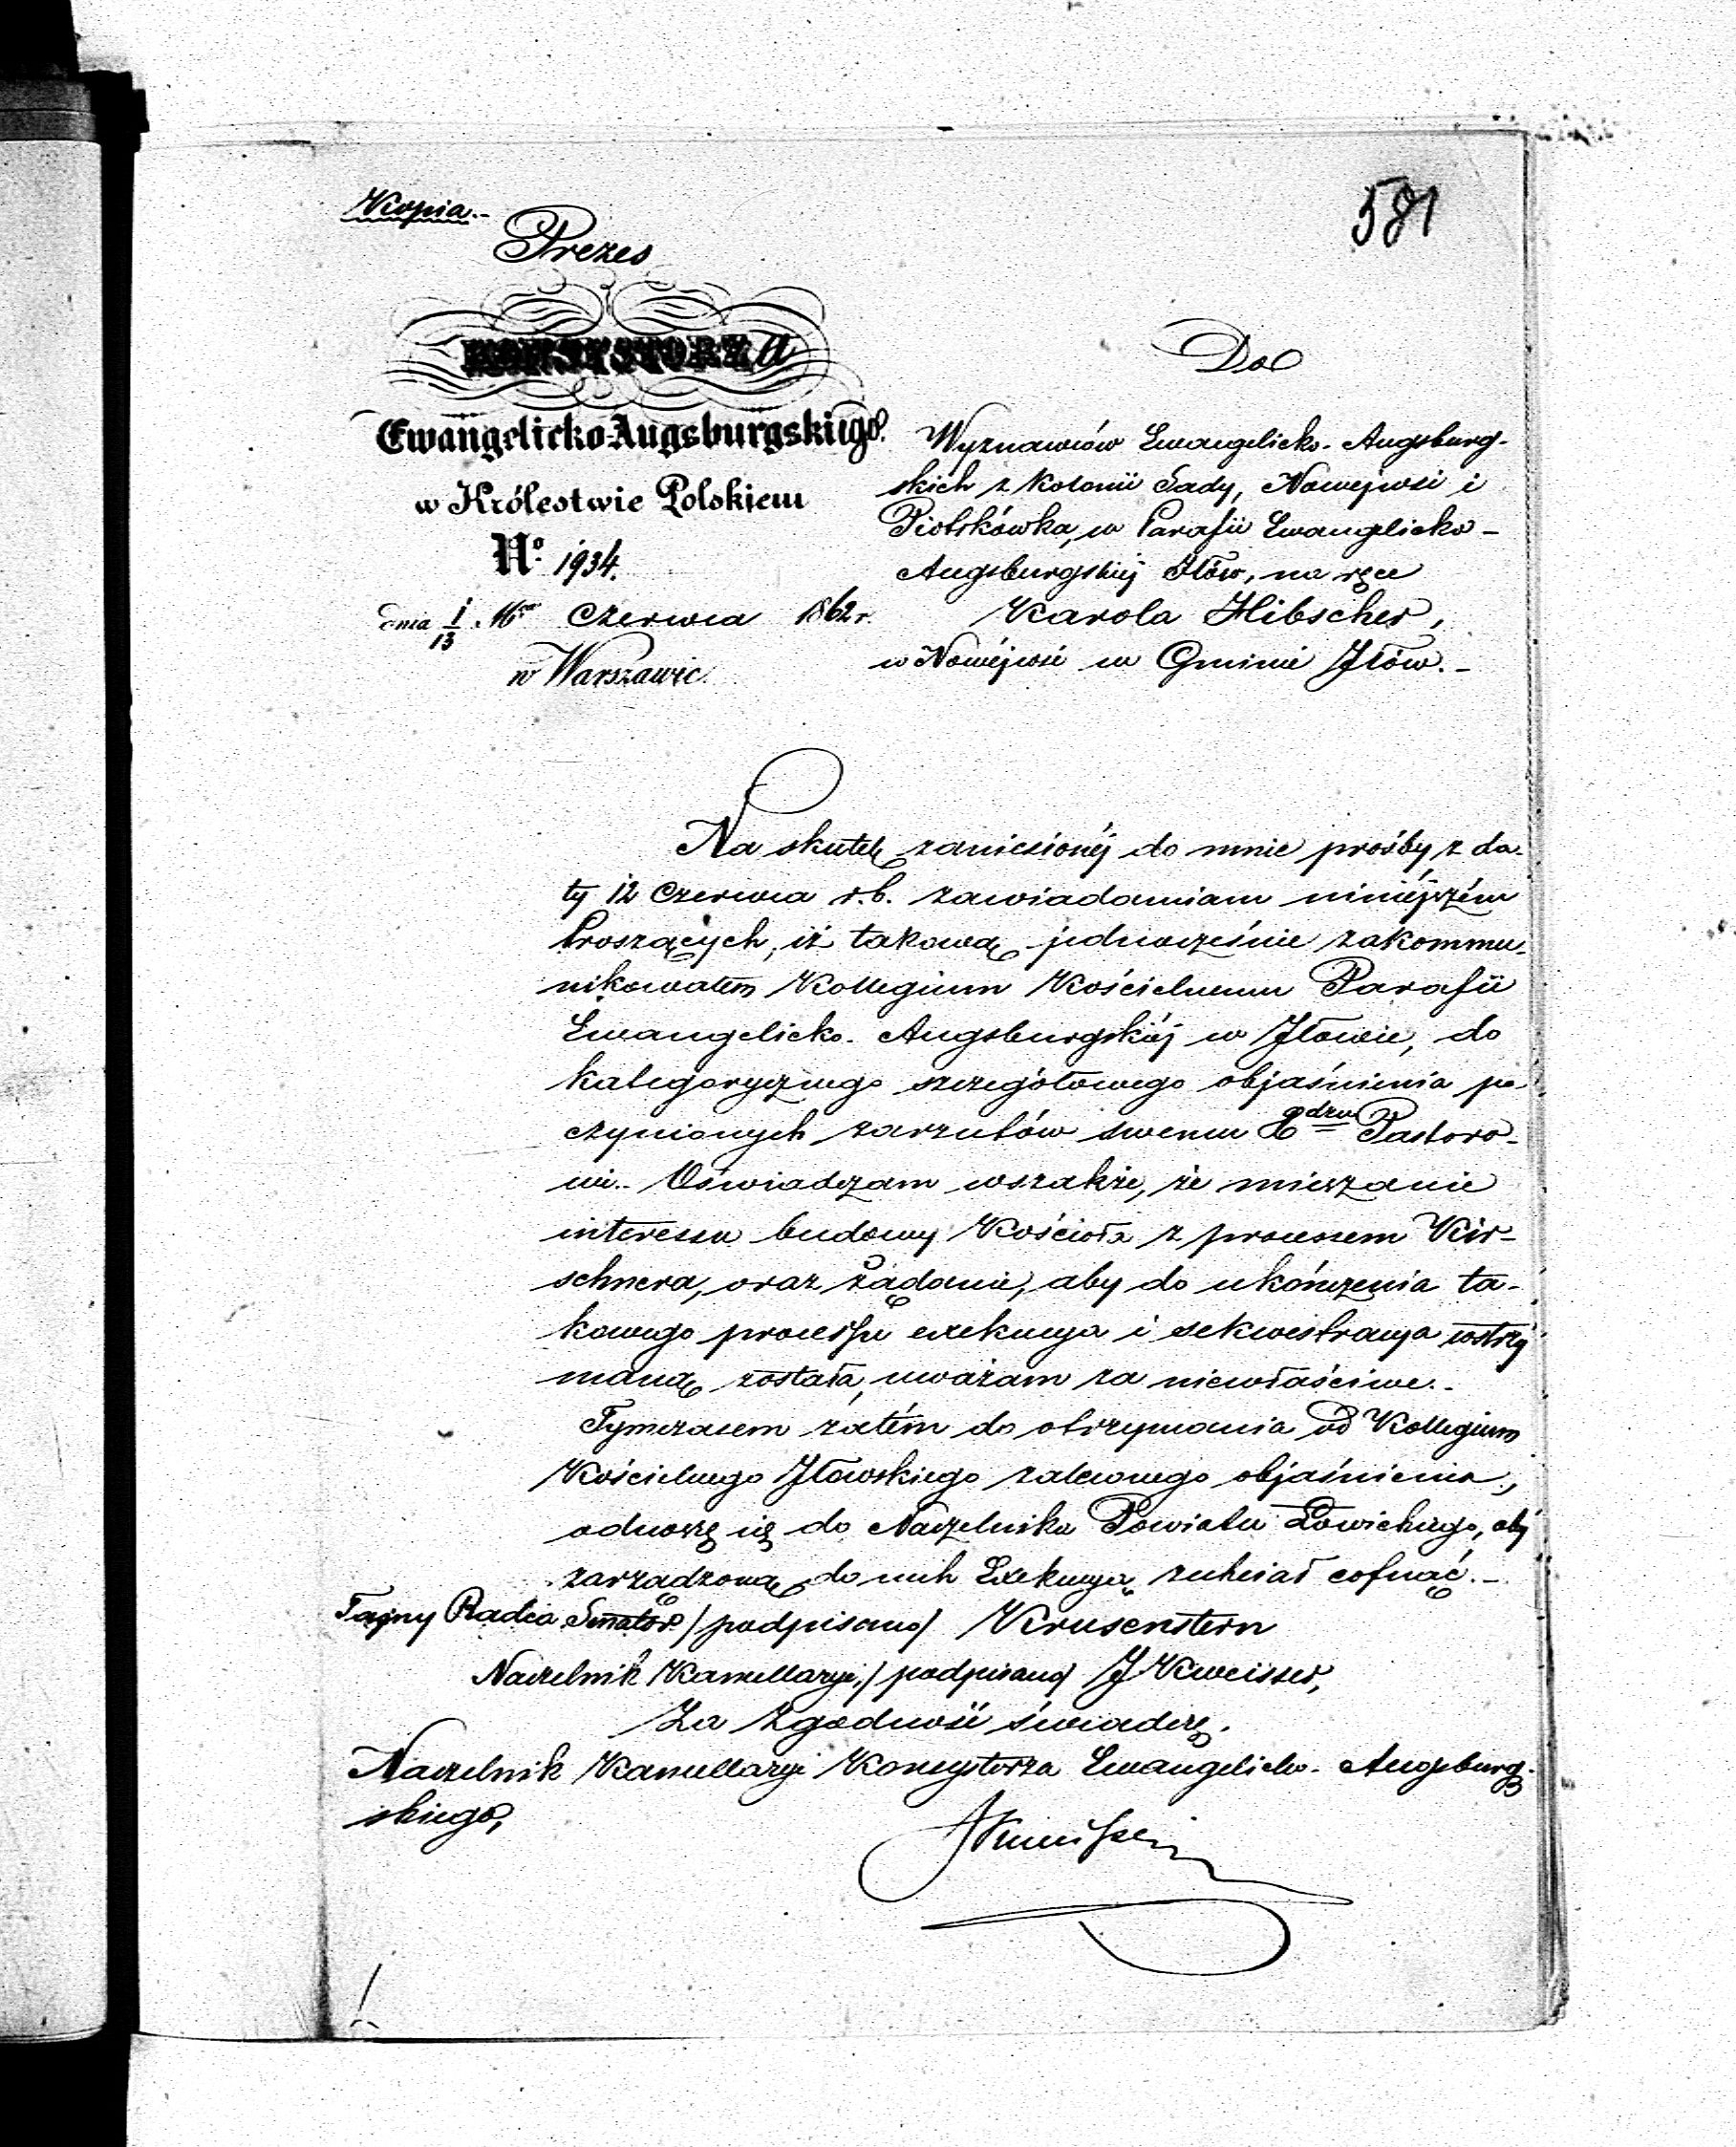 Kopia.-
581
Prezes
KONSYSTORZA
Ewangelicko-Augsburgskiego.
w Królestwie Polskiem
No. 1934.
dnia 1/13 Mca Czerwca 1862 r.
w Warszawie.
Do
Wyznawców Ewangelicko-Augsburg-
skich z Kolonii Sady, Nowejwsi i
Piotrkówka, w Parafii Ewangelicko-
Augsburgskiej Iłów, na ręce
Karola Hibscher,
w Nowéjwsi w Gminie Jłów.-
Na skutek zaniesionéj do mnie prośby z da-
ty 12 Czerwca r.b. zawiadamiam niniéjszém
Proszących, iż takową jednocześnie zakommu-
nikowałem Kollegium Kościelnemu Parafii
Ewangelicko-Augsburgskiéj w Jłowie, do
kategorycznego szczegółowego objaśnienia po-
czynionych zarzutów swemu Xdzu Pastoro-
wi.- Oświadczam wszakże, że mieszanie
interessu budowy Kościoła z procesem Kir-
schnera, oraz żądanie, aby do ukończenia ta-
kowego processu exekucya i sekwestracya wstrzy
maną została, uważam za niewłaściwe.-
Tymczasem zatém do otrzymania od Kollegium
Kościelnego Jłowskiego zalconego objaśnienia,
odnoszę się do Naczelnika Powiatu Łowickiego, aby
zarządzoną do nich Exekucyą zechciał cofnąć.-
Tajny Radca Senator /podpisano/ Krusenstern
Naczelnik Kancellaryi, /podpisano/ J Kweisser,
Za zgodność świadczę.
Naczelnik Kancellaryi Konsystorza Ewangelicko-Augsburg-
skiego,